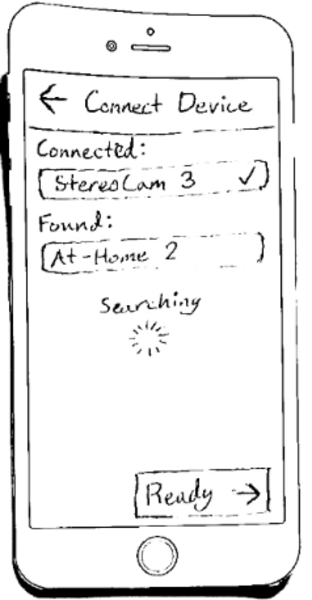 ← Connect Device
Connected:
StereoCam 3 ✓
Found:
At-Home 2
Searching
Ready →